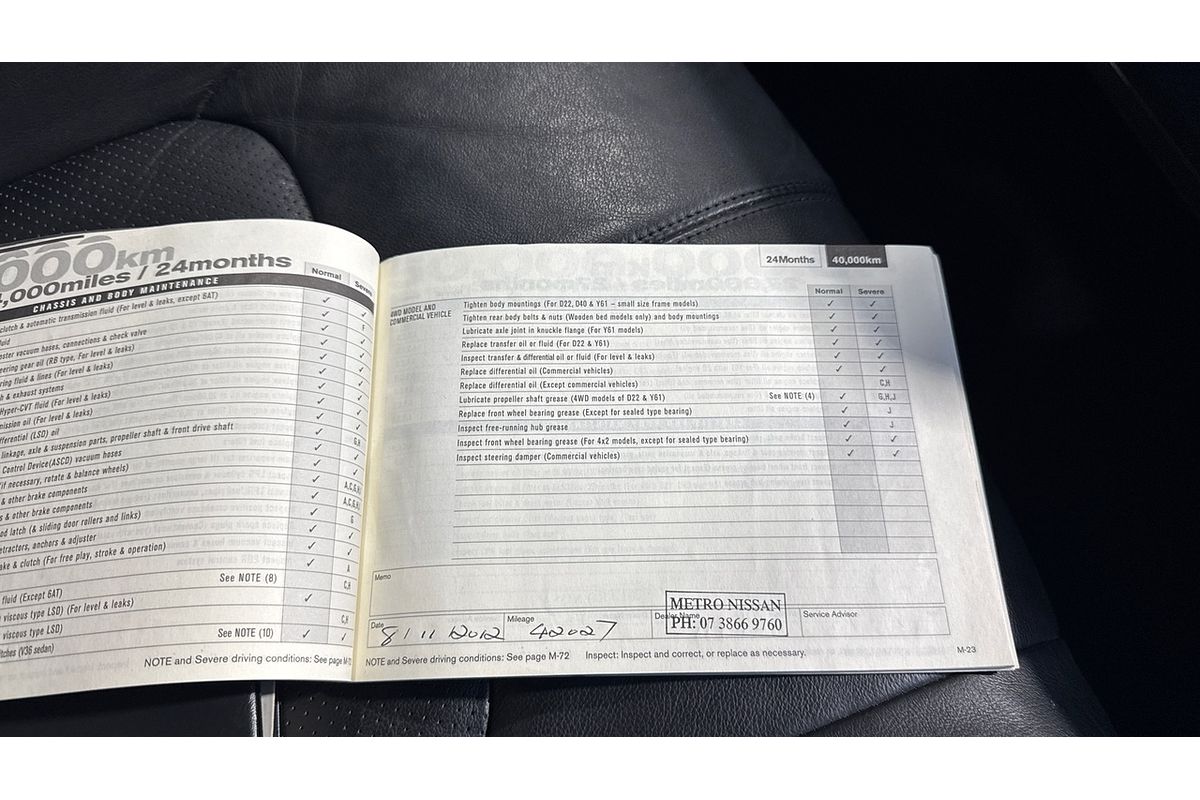 000km
,000miles / 24months
CHASSIS AND BODY MAINTENANCE
Normal
Severe
clutch & automatic transmission fluid (For level & leaks, except 6AT) ✓ ✓
fluid ✓ F
vacuum hoses, connections & check valve ✓ ✓
steering gear oil (RB type, For level & leaks) ✓ ✓
fluid & lines (For level & leaks) ✓ ✓
& exhaust systems ✓ ✓
Hyper-CVT fluid (For level & leaks) ✓ ✓
oil (For level & leaks) ✓ ✓
(LSD) oil ✓
linkage, axle & suspension parts, propeller shaft & front drive shaft G,H
Control Device(ASCD) vacuum hoses ✓
(if necessary, rotate & balance wheels)
& other brake components A,C,G,H
& other brake components A,C,G,H
hood latch (& sliding door rollers and links) G
retractors, anchors & adjuster
brake & clutch (For free play, stroke & operation) A
See NOTE (8) C,H
fluid (Except 6AT) ✓
viscous type LSD) (For level & leaks)
viscous type LSD) C,H
See NOTE (10) ✓ ✓
(V36 sedan)
NOTE and Severe driving conditions: See page M-7
24Months 40,000km
Normal Severe
4WD MODEL AND
COMMERCIAL VEHICLE
Tighten body mountings (For D22, D40 & Y61 – small size frame models) ✓ ✓
Tighten rear body bolts & nuts (Wooden bed models only) and body mountings ✓ ✓
Lubricate axle joint in knuckle flange (For Y61 models) ✓ ✓
Replace transfer oil or fluid (For D22 & Y61) ✓ ✓
Inspect transfer & differential oil or fluid (For level & leaks) ✓ ✓
Replace differential oil (Commercial vehicles) ✓ ✓
Replace differential oil (Except commercial vehicles) C,H
Lubricate propeller shaft grease (4WD models of D22 & Y61) See NOTE (4) ✓ G,H,J
Replace front wheel bearing grease (Except for sealed type bearing) ✓ J
Inspect free-running hub grease ✓ J
Inspect front wheel bearing grease (For 4x2 models, except for sealed type bearing) ✓ ✓
Inspect steering damper (Commercial vehicles) ✓ ✓
Memo
Date 8/11 2012 Mileage 42027 Dealer Name Service Advisor
METRO NISSAN
PH: 07 3866 9760
NOTE and Severe driving conditions: See page M-72 Inspect: Inspect and correct, or replace as necessary.
M-23